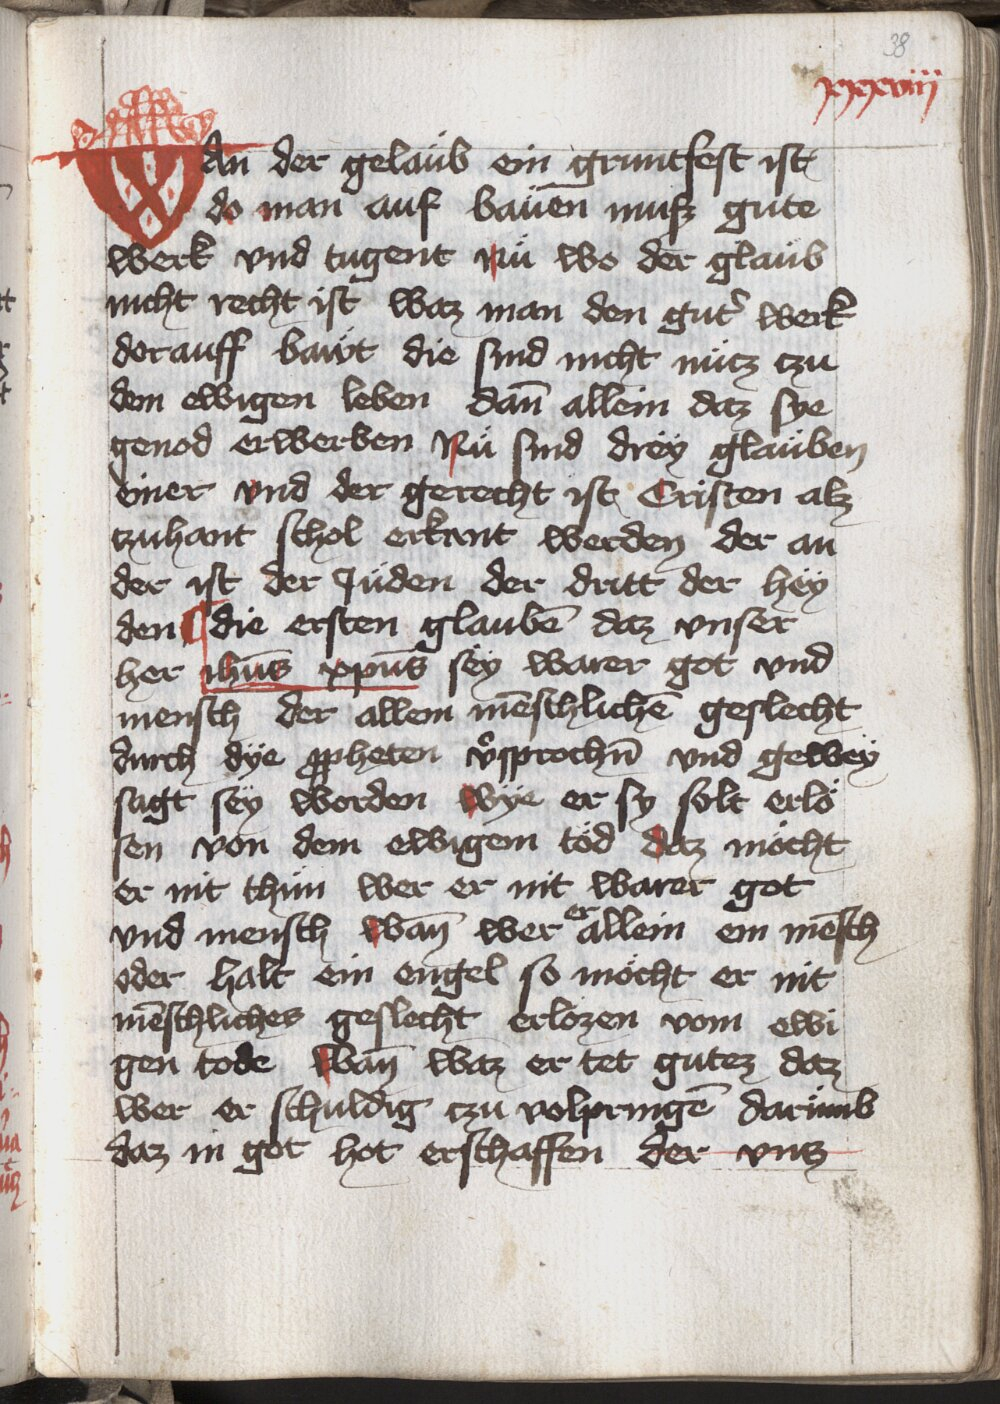 38
xxxviii
Van der gelaüb ein gruntfest ist
do man auf baüen̄ muß gute
werk vnd tugent Nü wo der glaüb
nicht recht ist waz man den gut̉ werk
dorauff bawt die sind nicht nücz czu
dem ewigen leben dan̄ allein daz sye
genod erwerben Nü sind dreÿ glaüben
einer vnd der gerecht ist Cristen alz
czuhant schol erkant werden der an
der ist der Jüden der dritt der heÿ
den die ersten glaubē daz vnser
her ihūs xpūs seÿ warer got vnd
mensch der allem mēschlichē geslecht
durch dÿe ꝓpheten v̉sprochn̄ vnd geweÿ
sagt seÿ worden wÿe er sy solt erlö
sen von dem ewigem töd daz möcht
er nit thün wer er nit warer got
vnd mensch wan̄ wer er allein ein mēsch
oder halt ein engel so möcht er nit
mēschliches geslecht erlözen vom ewi
gen tode wan̄ waz er tet gutez daz
wer er schuldig czu volpringē darümb
daz in got hot erschaffen der vns